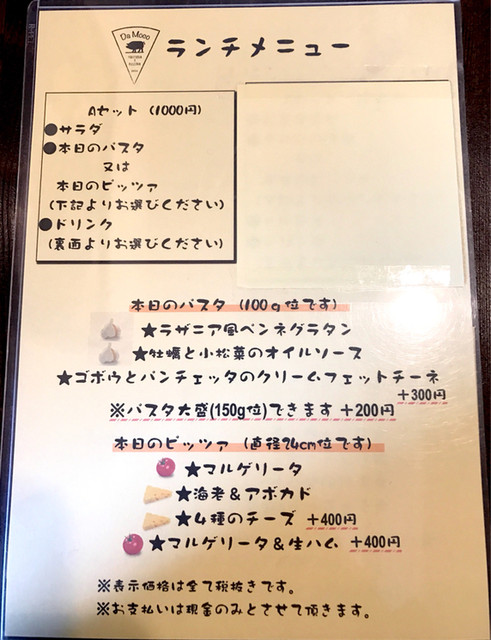 Da Mooo
ランチメニュー
Aセット (1000円)
●サラダ
●本日のパスタ
又は
本日のピッツァ
(下記よりお選びください)
●ドリンク
(裏面よりお選びください)
本日のパスタ (100g位です)
★ラザニア風ペンネグラタン
★牡蠣と小松菜のオイルソース
★ゴボウとパンチェッタのクリームフェットチーネ
+300円
※パスタ大盛(150g位)できます +200円
本日のピッツァ (直径24cm位です)
★マルゲリータ
★海老&アボカド
★4種のチーズ +400円
★マルゲリータ&生ハム +400円
※表示価格は全て税抜きです。
※お支払いは現金のみとさせて頂きます。